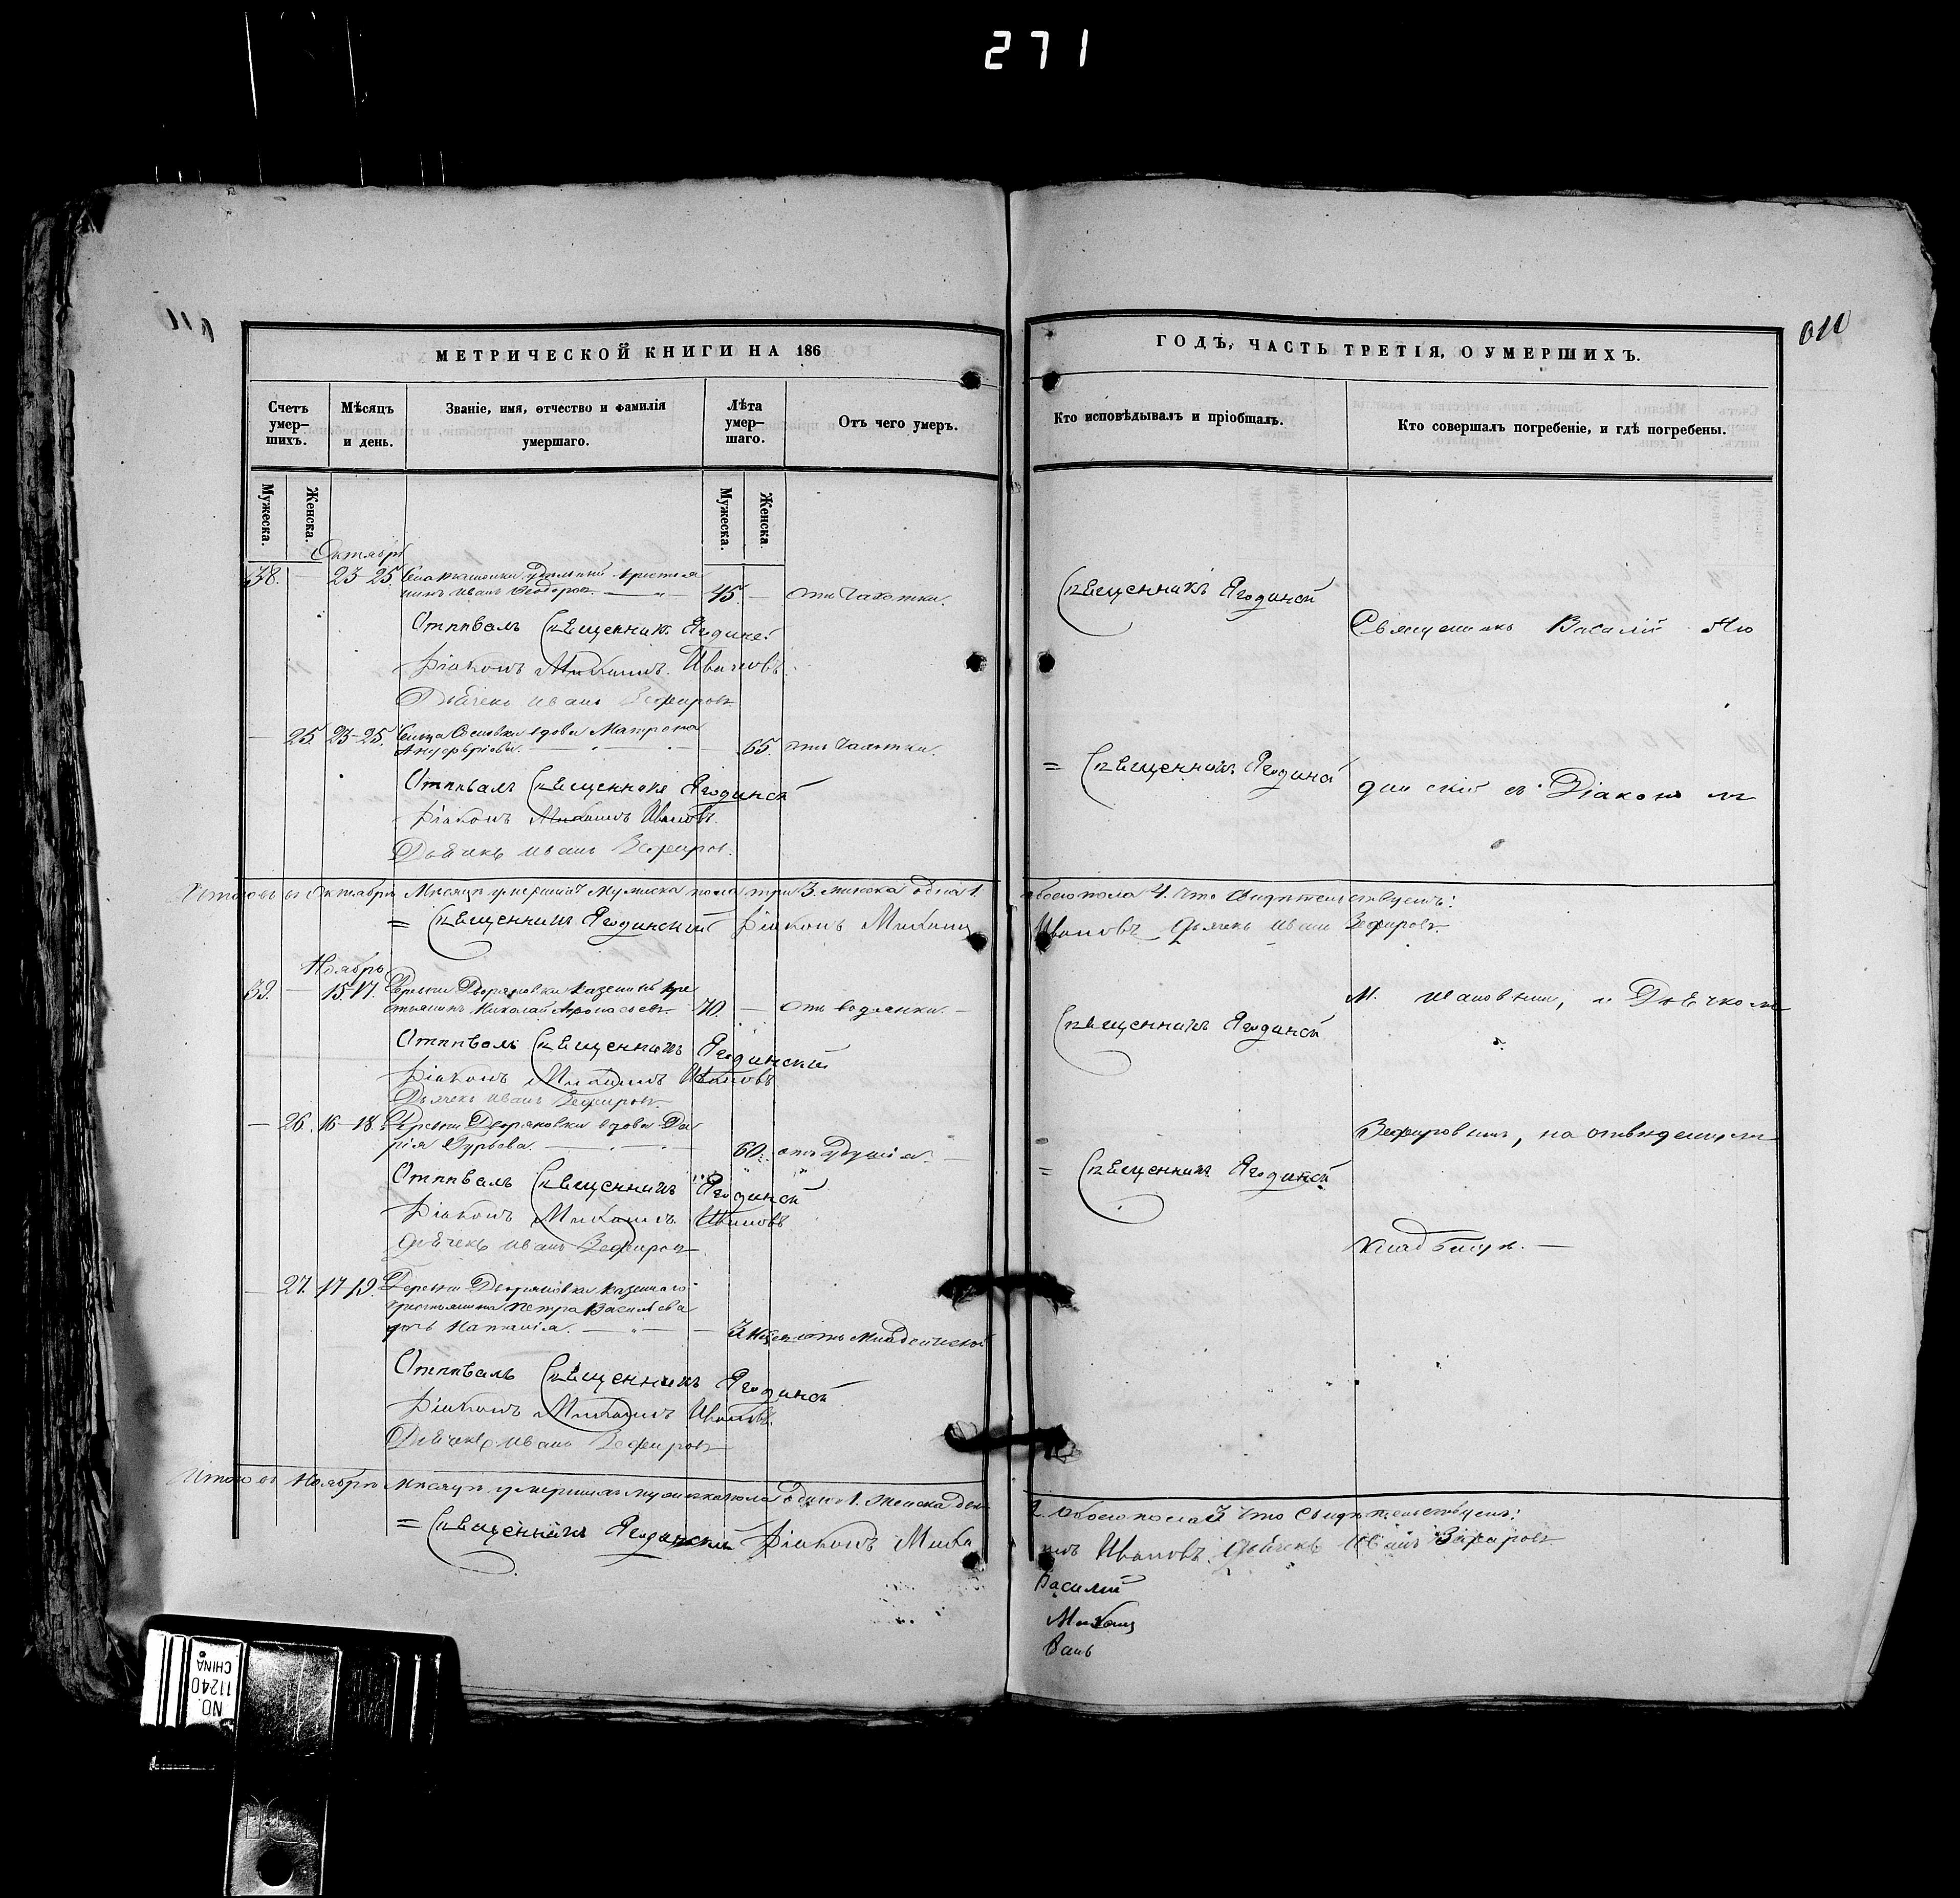 271
МЕТРИЧЕСКОЙ КНИГИ НА 186
ГОДЪ, ЧАСТЬ ТРЕТІЯ, О УМЕРШИХЪ.
Счетъ умер-шихъ.
Мѣсяцъ и день.
Званіе, имя, отчество и фамилія умершаго.
Лѣта умер-шаго.
Отъ чего умеръ.
Кто исповѣдывалъ и пріобщалъ.
Кто совершалъ погребеніе, и гдѣ погребены.
Мужеска.
Женска.
Мужеска.
Женска.
Октябрь
38. — 23-25
нинъ Иванъ Ѳеодоровъ. 45. — отъ чахотки.
Отпѣвалъ Священникъ Ягодинск
Діаконъ Михаилъ Ивановъ.
Дьячекъ Иванъ Зефировъ
Священникъ Ягодинскій
Священникъ Василій Яго
— 25. 23-25. вдова Матрона
65. отъ чахотки.
Отпѣвалъ Священникъ Ягодинскій
Діаконъ Михаилъ Ивановъ.
Дьячекъ Иванъ Зефировъ.
= Священникъ Ягодинскій
динскій съ Діакономъ
Итого въ Октябрѣ Мѣсяцѣ умершихъ Мужеска пола три 3. женска одна 1.
обоего пола 4. что свидѣтельствуемъ:
= Священникъ Ягодинскій Діаконъ Михаилъ
Ивановъ Дьячекъ Иванъ Зефировъ.
Ноябрь
39. — 15-17. Деревни Дворяновки казенный кре
стьянинъ Николай Афонасьевъ. 70. — отъ водянки. —
Отпѣвалъ Священникъ Ягодинскій
Діаконъ Михаилъ Ивановъ
Дьячекъ Иванъ Зефировъ.
Священникъ Ягодинскій
М. Ивановымъ, и Дьячкомъ
— 26. 16-18. Деревни Дворяновки вдова Да
рія Гурьева. — 60. отъ удушія. —
Отпѣвалъ Священникъ Ягодинскій
Діаконъ Михаилъ Ивановъ
Дьячекъ Иванъ Зефировъ
= Священникъ Ягодинскій
Зефировымъ, на отведенномъ
кладбищѣ. —
— 27. 17-19. Деревни Дворяновки казеннаго
крестьянина Петра Васильева
дочь 3 отъ младенческой
Отпѣвалъ Священникъ Ягодинскій
Діаконъ Михаилъ Ивановъ.
Дьячекъ Иванъ Зефировъ
Итого въ Ноябрѣ Мѣсяцѣ умершихъ мужеска пола одинъ 1. женска двѣ
2. обоего пола 3 что свидѣтельствуемъ:
= Священникъ Ягодинскій Діаконъ Миха
илъ Ивановъ Дьячекъ Иванъ Зефировъ
Василій
Михаил
Вань
NO.
11240
CHINA